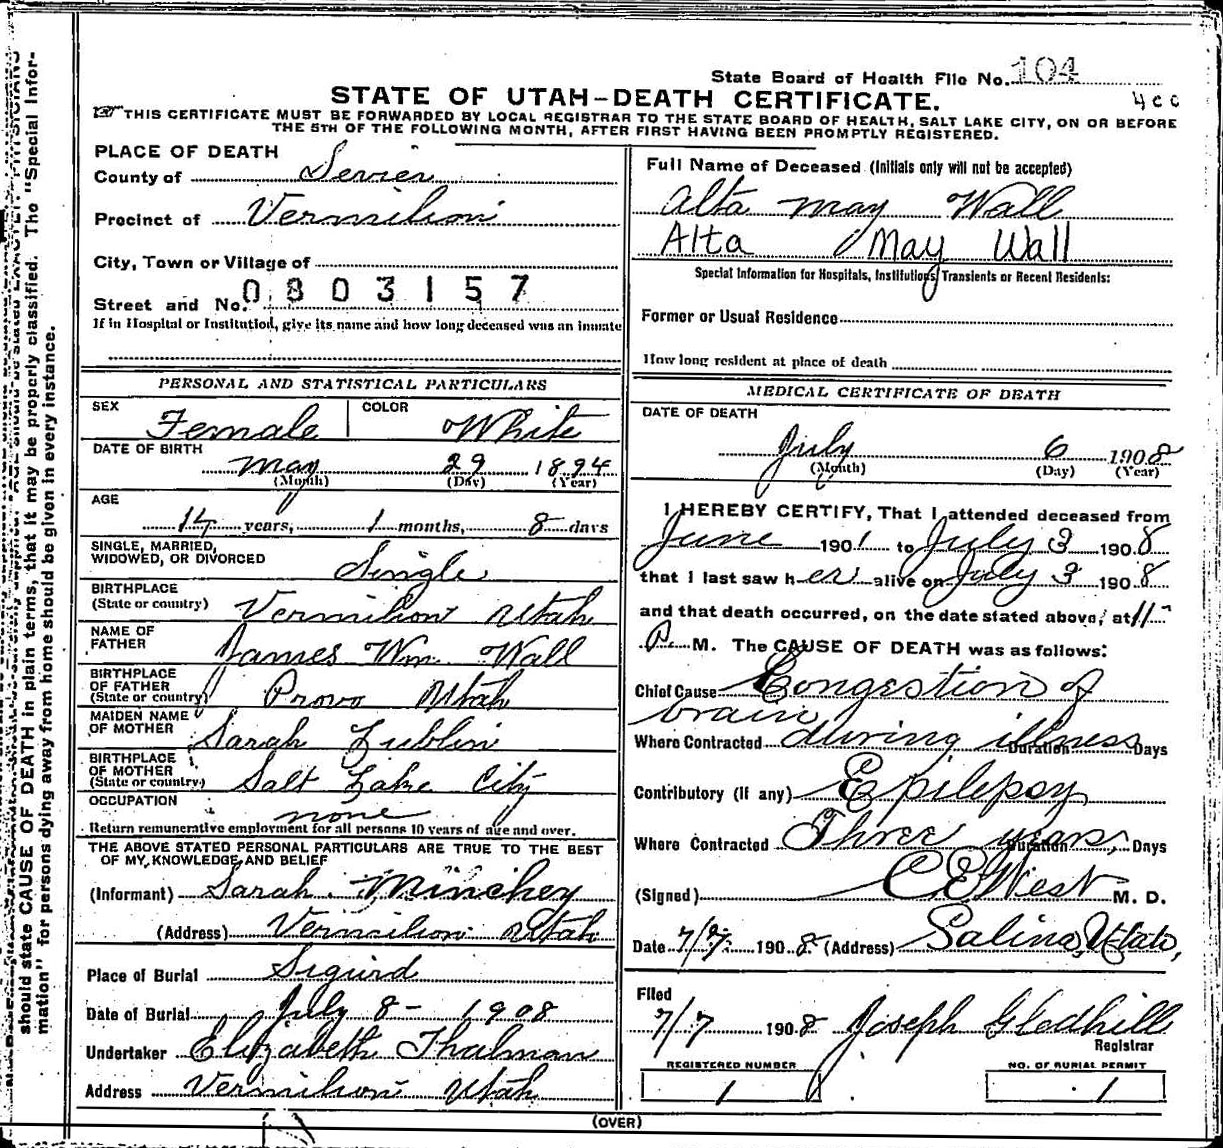 State Board of Health File No. 104
4cc
STATE OF UTAH–DEATH CERTIFICATE.
THIS CERTIFICATE MUST BE FORWARDED BY LOCAL REGISTRAR TO THE STATE BOARD OF HEALTH, SALT LAKE CITY, ON OR BEFORE
THE 5TH OF THE FOLLOWING MONTH, AFTER FIRST HAVING BEEN PROMPTLY REGISTERED.
PLACE OF DEATH
County of Sevier
Precinct of Vermilion
City, Town or Village of
Street and No. 0803157
If in Hospital or Institution, give its name and how long deceased was an inmate
PERSONAL AND STATISTICAL PARTICULARS
SEX Female COLOR White
DATE OF BIRTH
May 29 1894
(Month) (Day) (Year)
AGE
14 years, 1 months, 8 days
SINGLE, MARRIED,
WIDOWED, OR DIVORCED Single
BIRTHPLACE
(State or country) Vermilion Utah
NAME OF
FATHER James Wm. Wall
BIRTHPLACE
OF FATHER
(State or country) Provo Utah
MAIDEN NAME
OF MOTHER Sarah Lublin
BIRTHPLACE
OF MOTHER
(State or country) Salt Lake City
OCCUPATION
none
Return remunerative employment for all persons 10 years of age and over.
THE ABOVE STATED PERSONAL PARTICULARS ARE TRUE TO THE BEST
OF MY KNOWLEDGE AND BELIEF
(Informant) Sarah Minchey
(Address) Vermilion Utah
Place of Burial Sigurd
Date of Burial July 8 - 1908
Undertaker Elizabeth Thalman
Address Vermilion Utah
Full Name of Deceased (Initials only will not be accepted)
Alta May Wall
Alta May Wall
Special Information for Hospitals, Institutions, Transients or Recent Residents:
Former or Usual Residence
How long resident at place of death
MEDICAL CERTIFICATE OF DEATH
DATE OF DEATH
July 6 1908
(Month) (Day) (Year)
I HEREBY CERTIFY, That I attended deceased from
June 1901 to July 3 1908
that I last saw her alive on July 3 1908
and that death occurred, on the date stated above, at 11
P. M. The CAUSE OF DEATH was as follows:
Chief Cause Congestion of
brain
Where Contracted during illness Duration Days
Contributory (if any) Epilepsy
Where Contracted Three years, Duration Days
(Signed) C E West M. D.
Date 7/7 1908. (Address) Salina, Utah,
Filed
7/7 1908 Joseph Gledhill
Registrar
REGISTERED NUMBER
1
NO. OF BURIAL PERMIT
1
(OVER)
should state CAUSE OF DEATH in plain terms, that it may be properly classified. The "Special Infor-
mation" for persons dying away from home should be given in every instance.